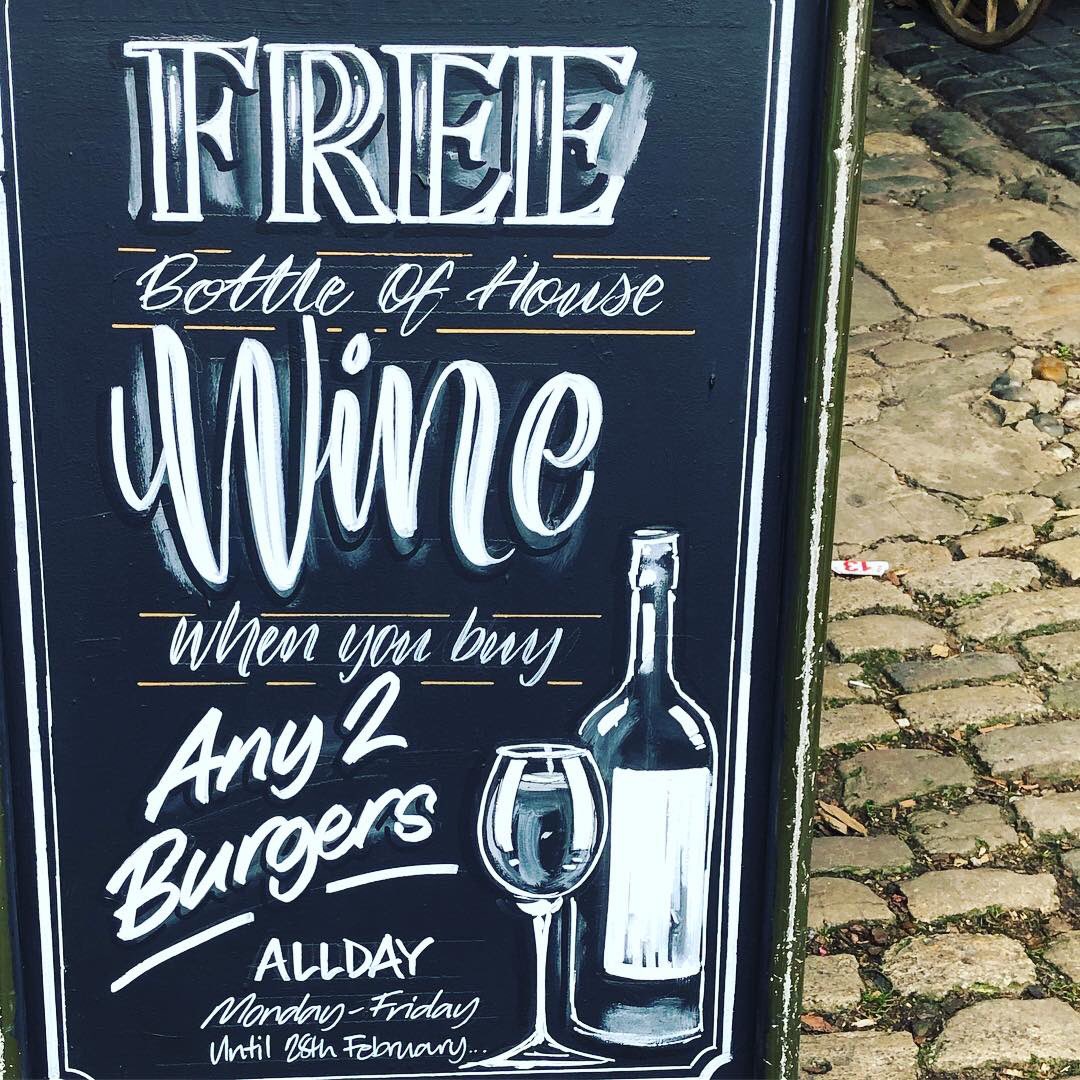 FREE
Bottle Of House
Wine
when you buy
Any 2
Burgers
ALLDAY
Monday-Friday
Until 28th February...
£13